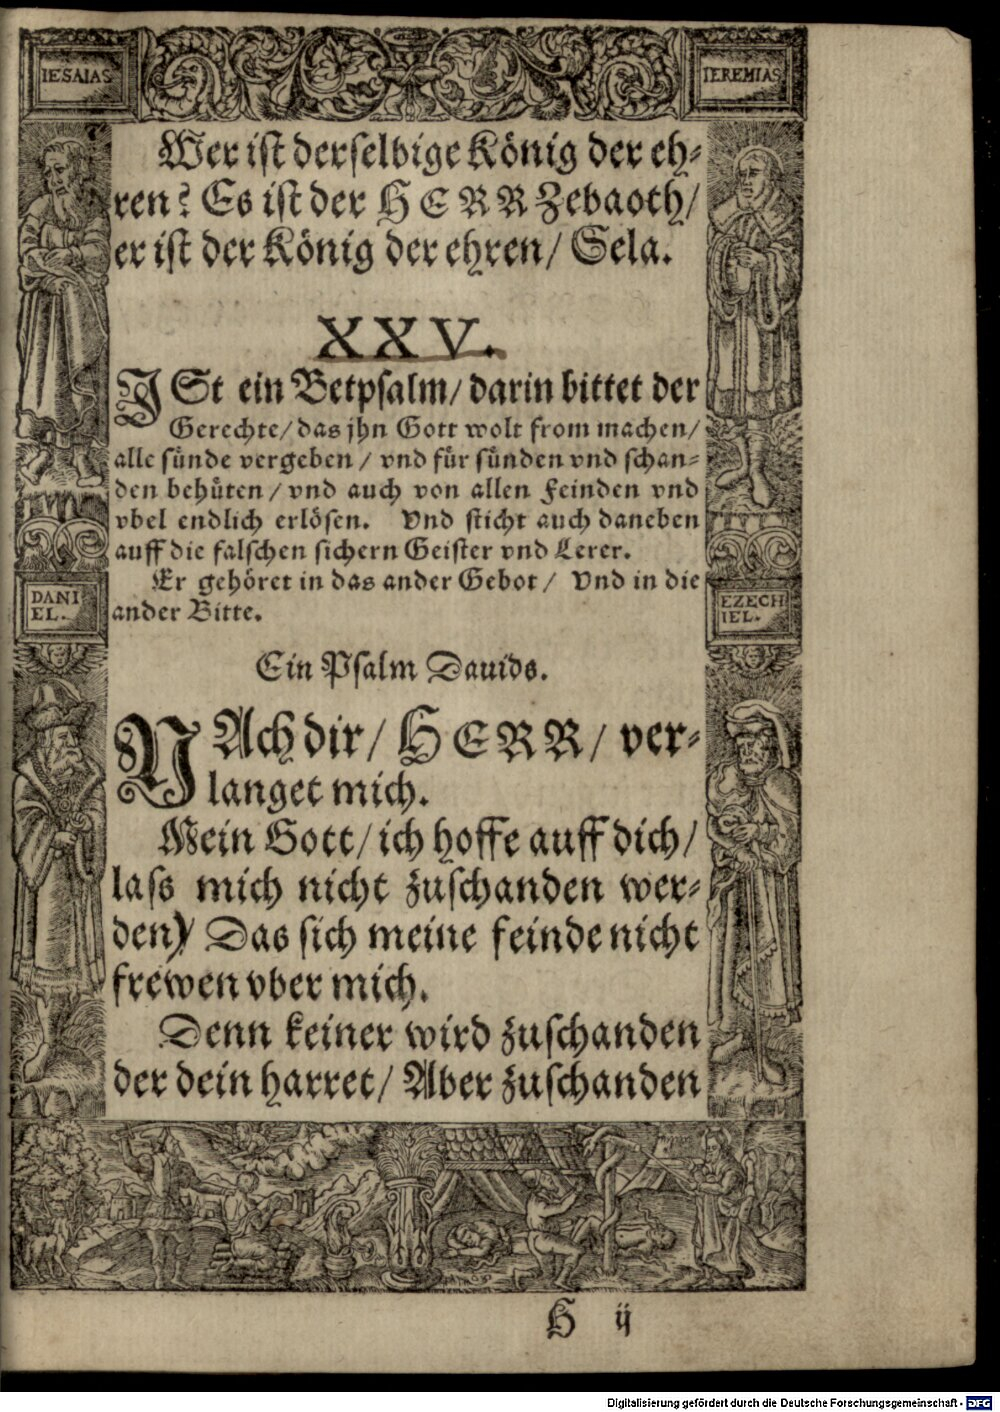 IESAIAS
IEREMIAS
Wer ist derselbige König der eh⸗
ren? Es ist der HERR Zebaoth/
er ist der König der ehren/ Sela.
XXV.
ISt ein Betpsalm/ darin bittet der
Gerechte/ das jhn Gott wolt from machen/
alle sünde vergeben/ vnd für sünden vnd schan⸗
den behüten/ vnd auch von allen Feinden vnd
vbel endlich erlösen. Vnd sticht auch daneben
auff die falschen sichern Geister vnd Lerer.
Er gehöret in das ander Gebot/ Vnd in die
ander Bitte.
DANI
EL.
EZECH
IEL.
Ein Psalm Dauids.
NAch dir/ HERR/ ver⸗
langet mich.
Mein Gott/ ich hoffe auff dich/
lass mich nicht zuschanden wer⸗
den)/ Das sich meine feinde nicht
frewen vber mich.
Denn keiner wird zuschanden
der dein harret/ Aber zuschanden
H ij
Digitalisierung gefördert durch die Deutsche Forschungsgemeinschaft - DFG